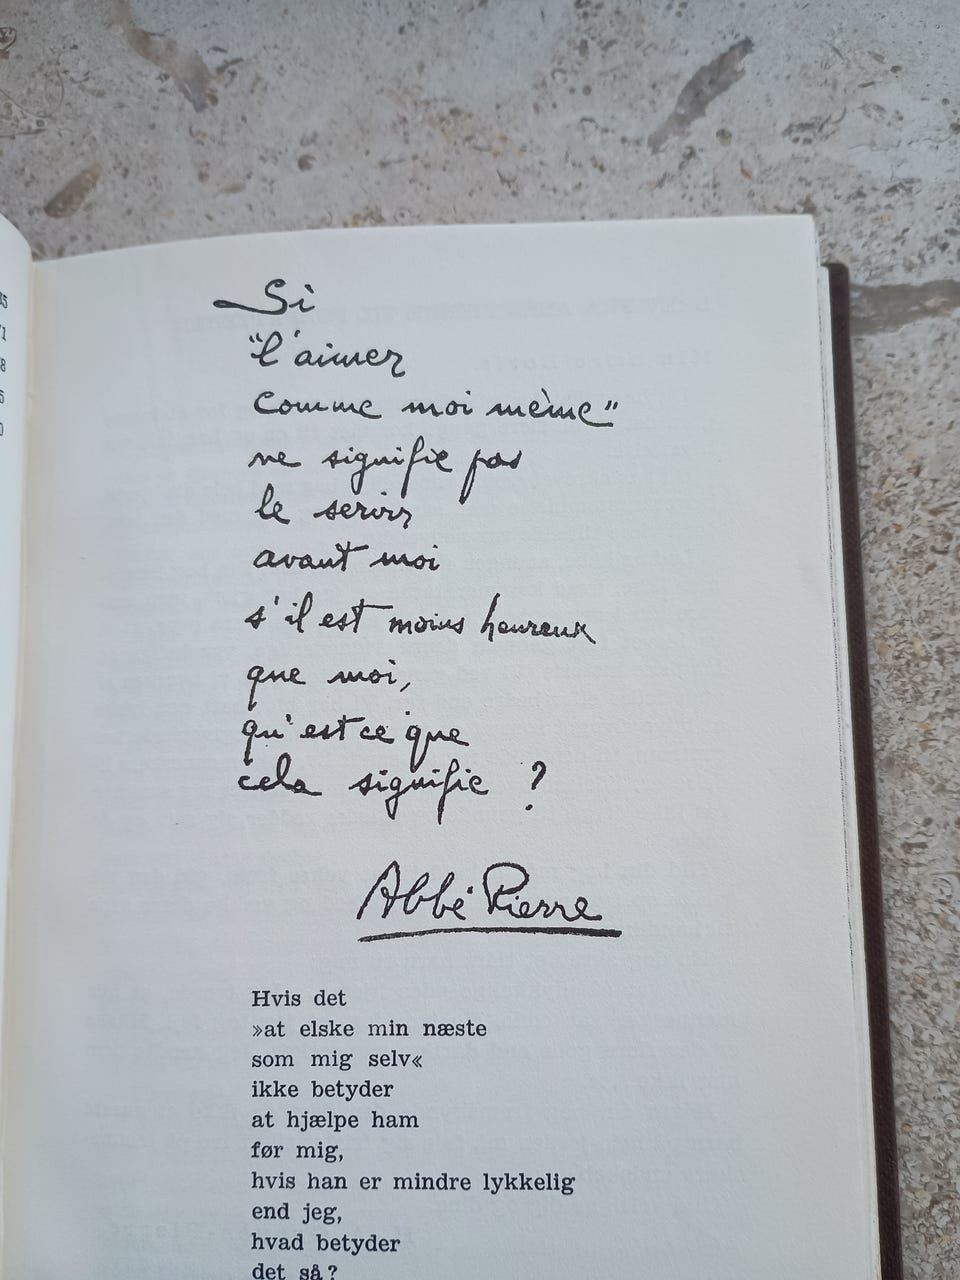 35
71
78
5
0
Si
"l'aimer
comme moi même"
ne signifie pas
le servir
avant moi
s'il est moins heureux
que moi,
qu'est ce que
cela signifie ?
Abbé Pierre
Hvis det
»at elske min næste
som mig selv«
ikke betyder
at hjælpe ham
før mig,
hvis han er mindre lykkelig
end jeg,
hvad betyder
det så?